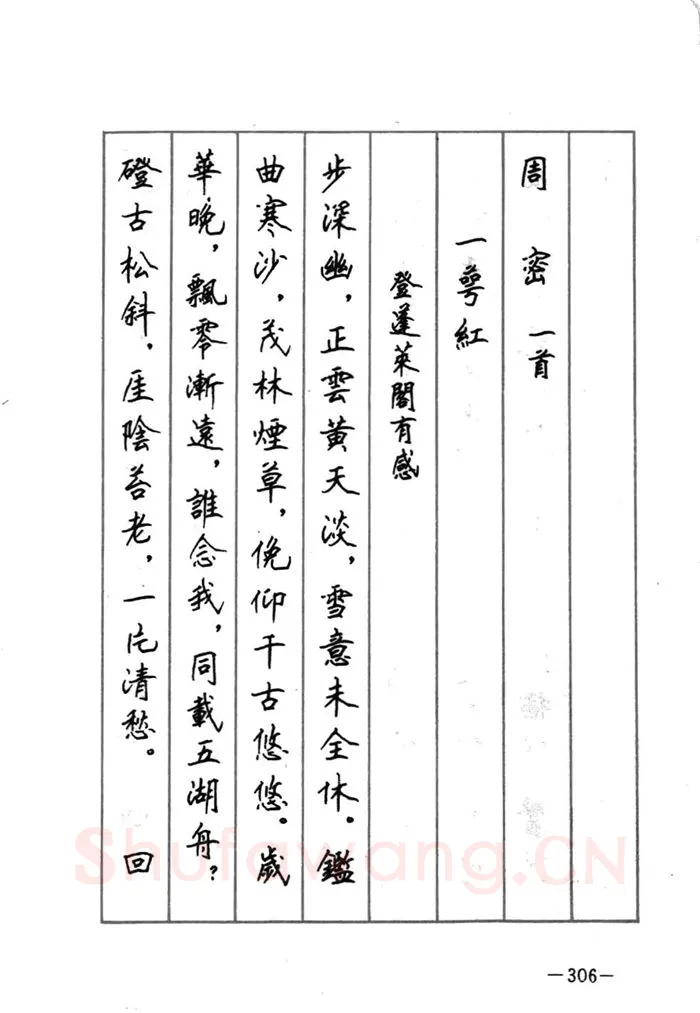 周密 一首
一萼紅
登蓬萊閣有感
步深幽，正雲黃天淡，雪意未全休。鑑
曲寒沙，茂林煙草，俛仰千古悠悠。歲
華晚，飄零漸遠，誰念我，同載五湖舟？
磴古松斜，厓陰苔老，一片清愁。 回
Shufawang.CN
—306—